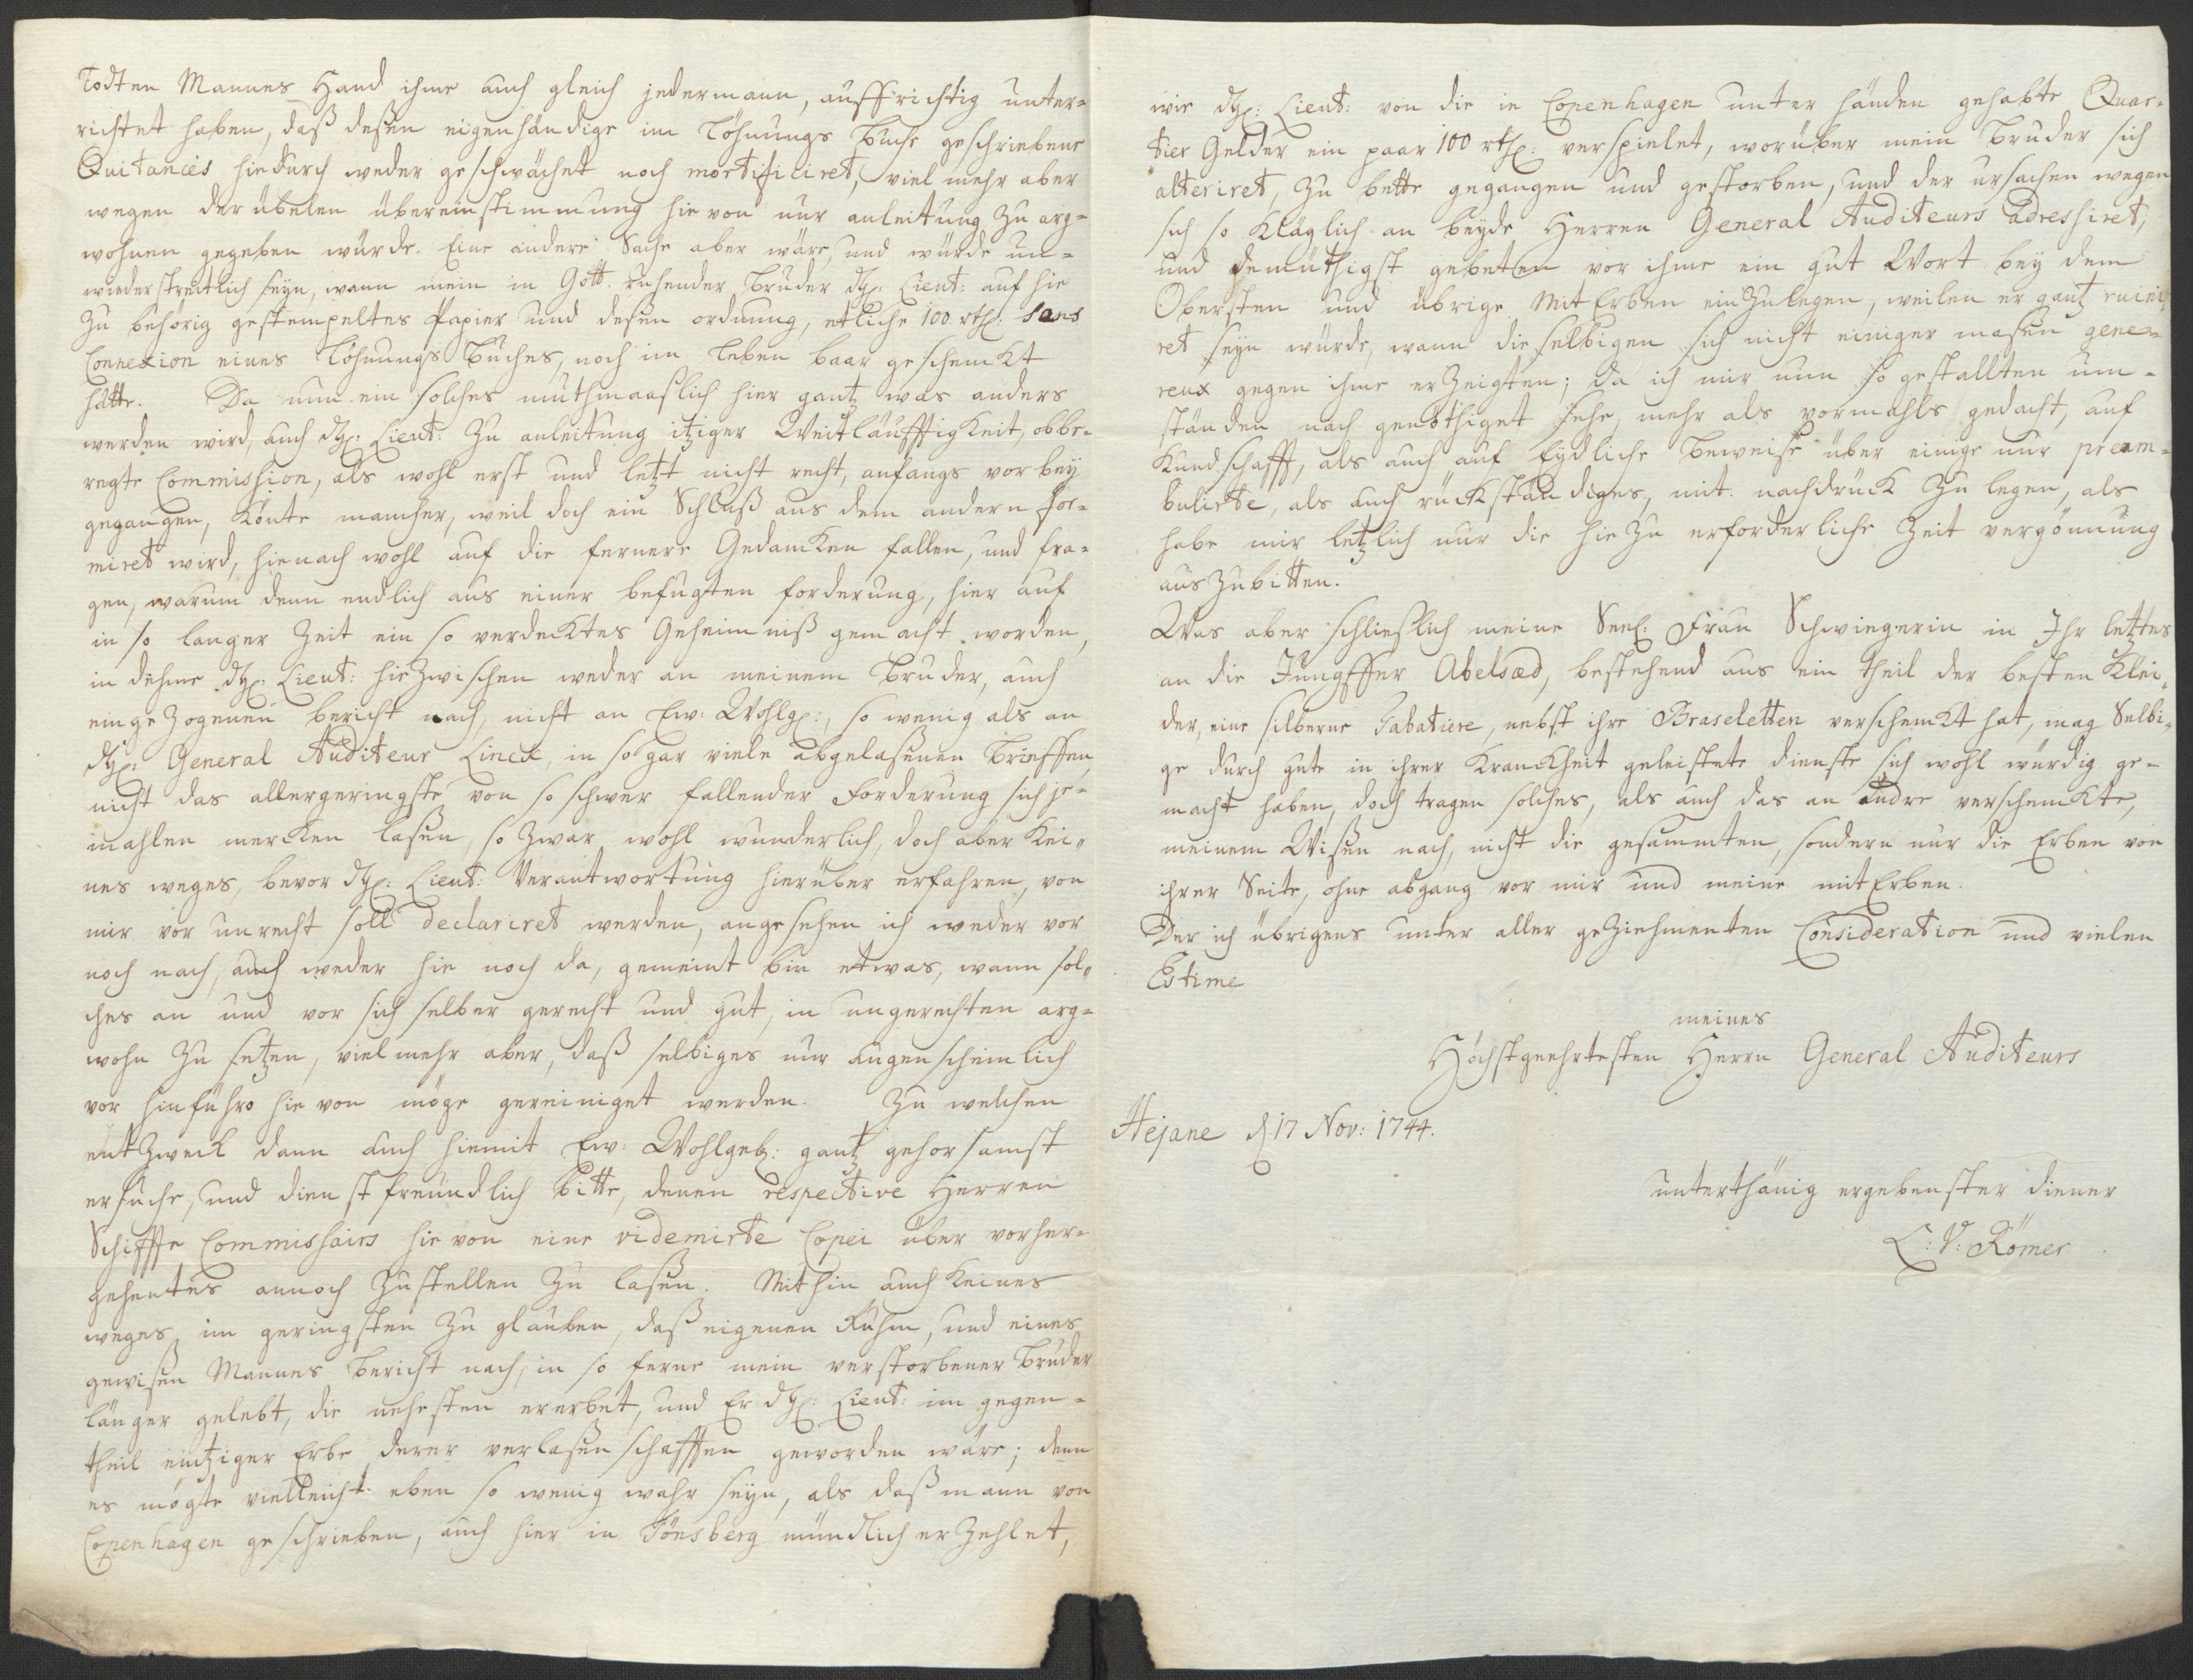 Todten Mannes Hand ihme auch gleich jedermann, auffrichtig unter-
richtet haben, daß deßen eigenhändige im Löhnungs Buche geschriebene
Quitances hiedurch weder geschwächet noch mortificiret, viel mehr aber
wegen der übelen übereinstimmung hievon nur anleitung zu arg-
wohnen gegeben würde. Eine andere Sache aber wäre, und würde un-
wiederstreitlich seyn, wann mein in Gott ruhender Bruder dH: Lieut: auf hie
zu behörig gestempeltes Papier und deßen ordnung, etliche 100 rth: sans
Connexion eines Löhnungs Buches, noch im Leben baar geschenckt
hätte. Da nun ein solches muthmaaslich hier gantz was anders
werden wird, auch dH: Lieut: zu anleitung itziger Weitläufftigkeit, obbe-
regte Commission, als wohl erst und letzt nicht recht, anfangs vorbey
gegangen, könte mancher, weil doch ein Schluß aus dem andern for-
miret wird, hienach wohl auf die fernere Gedancken fallen, und fra-
gen, warum denn endlich aus einer befugten forderung, hier auf
in so langer Zeit ein so verdecktes Geheimniß gemacht worden,
in dehme dH: Lieut: hiezwischen weder an meinem Bruder, auch
eingezogenen bericht nach, nicht an Ew: Wohlg:, so wenig als an
dH: General Auditeur Linck, in so gar viele abgelaßenen Brieffen,
nicht das allergeringste von so schwer fallender Forderung sich je-
mahlen mercken laßen, so zwar wohl wunderlich, doch aber kei-
nes weges, bevor dH: Lieut: Verantwortung hierüber erfahren, von
mir vor unrecht soll declariret werden, angesehen ich weder vor
noch nach, auch weder hie noch da, gemeint bin etwas, wann sol-
ches an und vor sich selber gerecht und gut, in ungerechten arg-
wohn zu setzen, vielmehr aber, daß selbiges nur augenscheinlich
vor hinführo hievon möge gereiniget werden. Zu welchen
entzweck dann auch hiemit Ew: Wohlgeb: gantz gehorsamst
ersuche, und dienstfreundlich bitte, denen respective Herren
Schiffte Commissairs hievon eine videmirte Copei über vorher-
gehentes annoch zustellen zu laßen. Mithin auch keines
weges im geringsten zu glauben, daß eigenen Ruhm, und eines
gewißen Mannes Bericht nach, in so ferne mein verstorbener Bruder
länger gelebt, die nehesten ererbet, und Er dH: Lieut: im gegen-
theil eintziger Erbe derer verlaßenschafften geworden wäre; denn
es mögte vielleicht eben so wenig wahr seyn, als daß mann von
Copenhagen geschrieben, auch hier in Tönsberg mündlich erzehlet,
wie dH: Lieut: von die in Copenhagen unter händen gehabte Quar-
tier Gelder ein paar 100 rth: verspielet, worüber mein Bruder sich
alteriret, zu bette gegangen und gestorben, und der ursachen wegen
sich so kläglich an beyde Herren General Auditeurs adressiret,
und demüthigst gebeten vor ihme ein gut Wort bey dem
Obersten und übrige Mit Erben einzulegen, weilen er gantz ruini-
ret seyn würde, wann die selbigen sich nicht einiger maßen gene-
reux gegen ihme erzeigten; da ich mir nun so gestallten um-
ständen nach genöthiget sehe, mehr als vormahls gedacht, auf
Kundschafft, als auch auf Eydliche Beweise über einige nur pream-
bulirte, als auch rückständiges, mit nachdruck zu legen, als
habe mir letzlich nur die hiezu erforderliche Zeit vergönnung
auszubitten.
Was aber schlieslich meine Seel: Frau Schwiegerin in Ihr letztes
an die Jungffer Abelsæd, bestehend aus ein theil der besten Klei-
der, eine silberne Tabatiere, nebst ihre Braseletten verschenckt hat, mag Selbi-
ge durch gute in ihrer Kranckheit geleistete dienste sich wohl würdig ge-
macht haben, doch tragen solches, als auch das an andre verschenckte,
meinem Wißen nach, nicht die gesammten, sondern nur die Erben von
ihrer Seite, ohne abgang vor mir und meine mit Erben.
Der ich übrigens unter aller geziehmenten Consideration und vielen
Estime
meines
Höchstgeehrtesten Herrn General Auditeurs
Hejane d 17 Nov: 1744.
unterthänig ergebenster diener
C: V: Römer